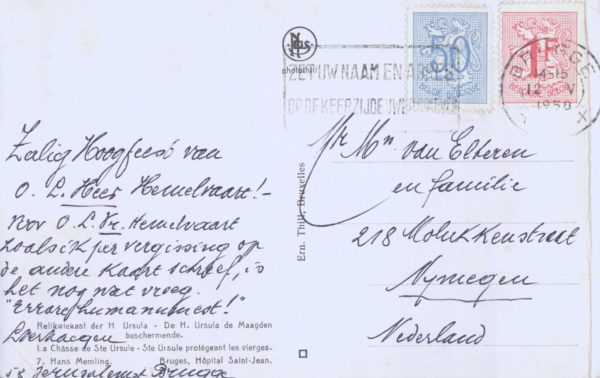 Zalig Hoogfeest van
O. L. Heer Hemelvaart!-
Voor O. L. Vr. Hemelvaart
zoals ik per vergissing op
de andere kaart schreef, is
het nog wat vroeg.
"Errare humanum est!"
Relikwiekast der H Ursula - De H. Ursula de Maagden
beschermende.
La Châsse de Ste Ursule - Ste Ursule protégeant les vierges.
7. Hans Memling. Bruges, Hôpital Saint-Jean.
53 Jeruzalemst Brugge
NELS
photothill
Ern. Thill, Bruxelles
ZET UW NAAM EN
OP DE KEERZIJDE UWER
50
1F
BRUGGE
14-15
12 V
1958
X
Mr Mn van Elteren
en familie
218 Molukkenstraat
Nymegen
Nederland